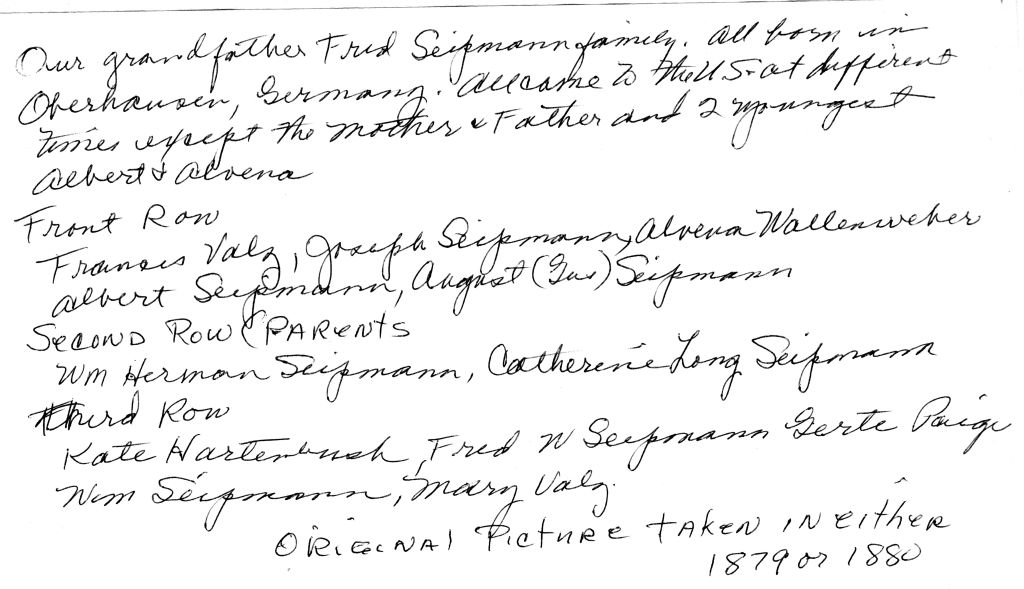 Our grandfather Fred Seipmann family. All born in
Oberhausen, Germany. All came to the U.S. at different
times except the mother & Father and 2 youngest
Albert & Alvena
Front Row
Francis Valz, Joseph Seipmann, Alvena Wallenweber
Albert Seipmann, August (Gus) Seipmann
SECOND ROW (PARENTS
Wm Herman Seipmann, Catherine Long Seipmann
Third Row
Kate Hartenbush, Fred W Seipmann Gerte Paige
Wm Seipmann, Mary Valz.
ORIGINAL PICTURE TAKEN IN EITHER
1879 or 1880